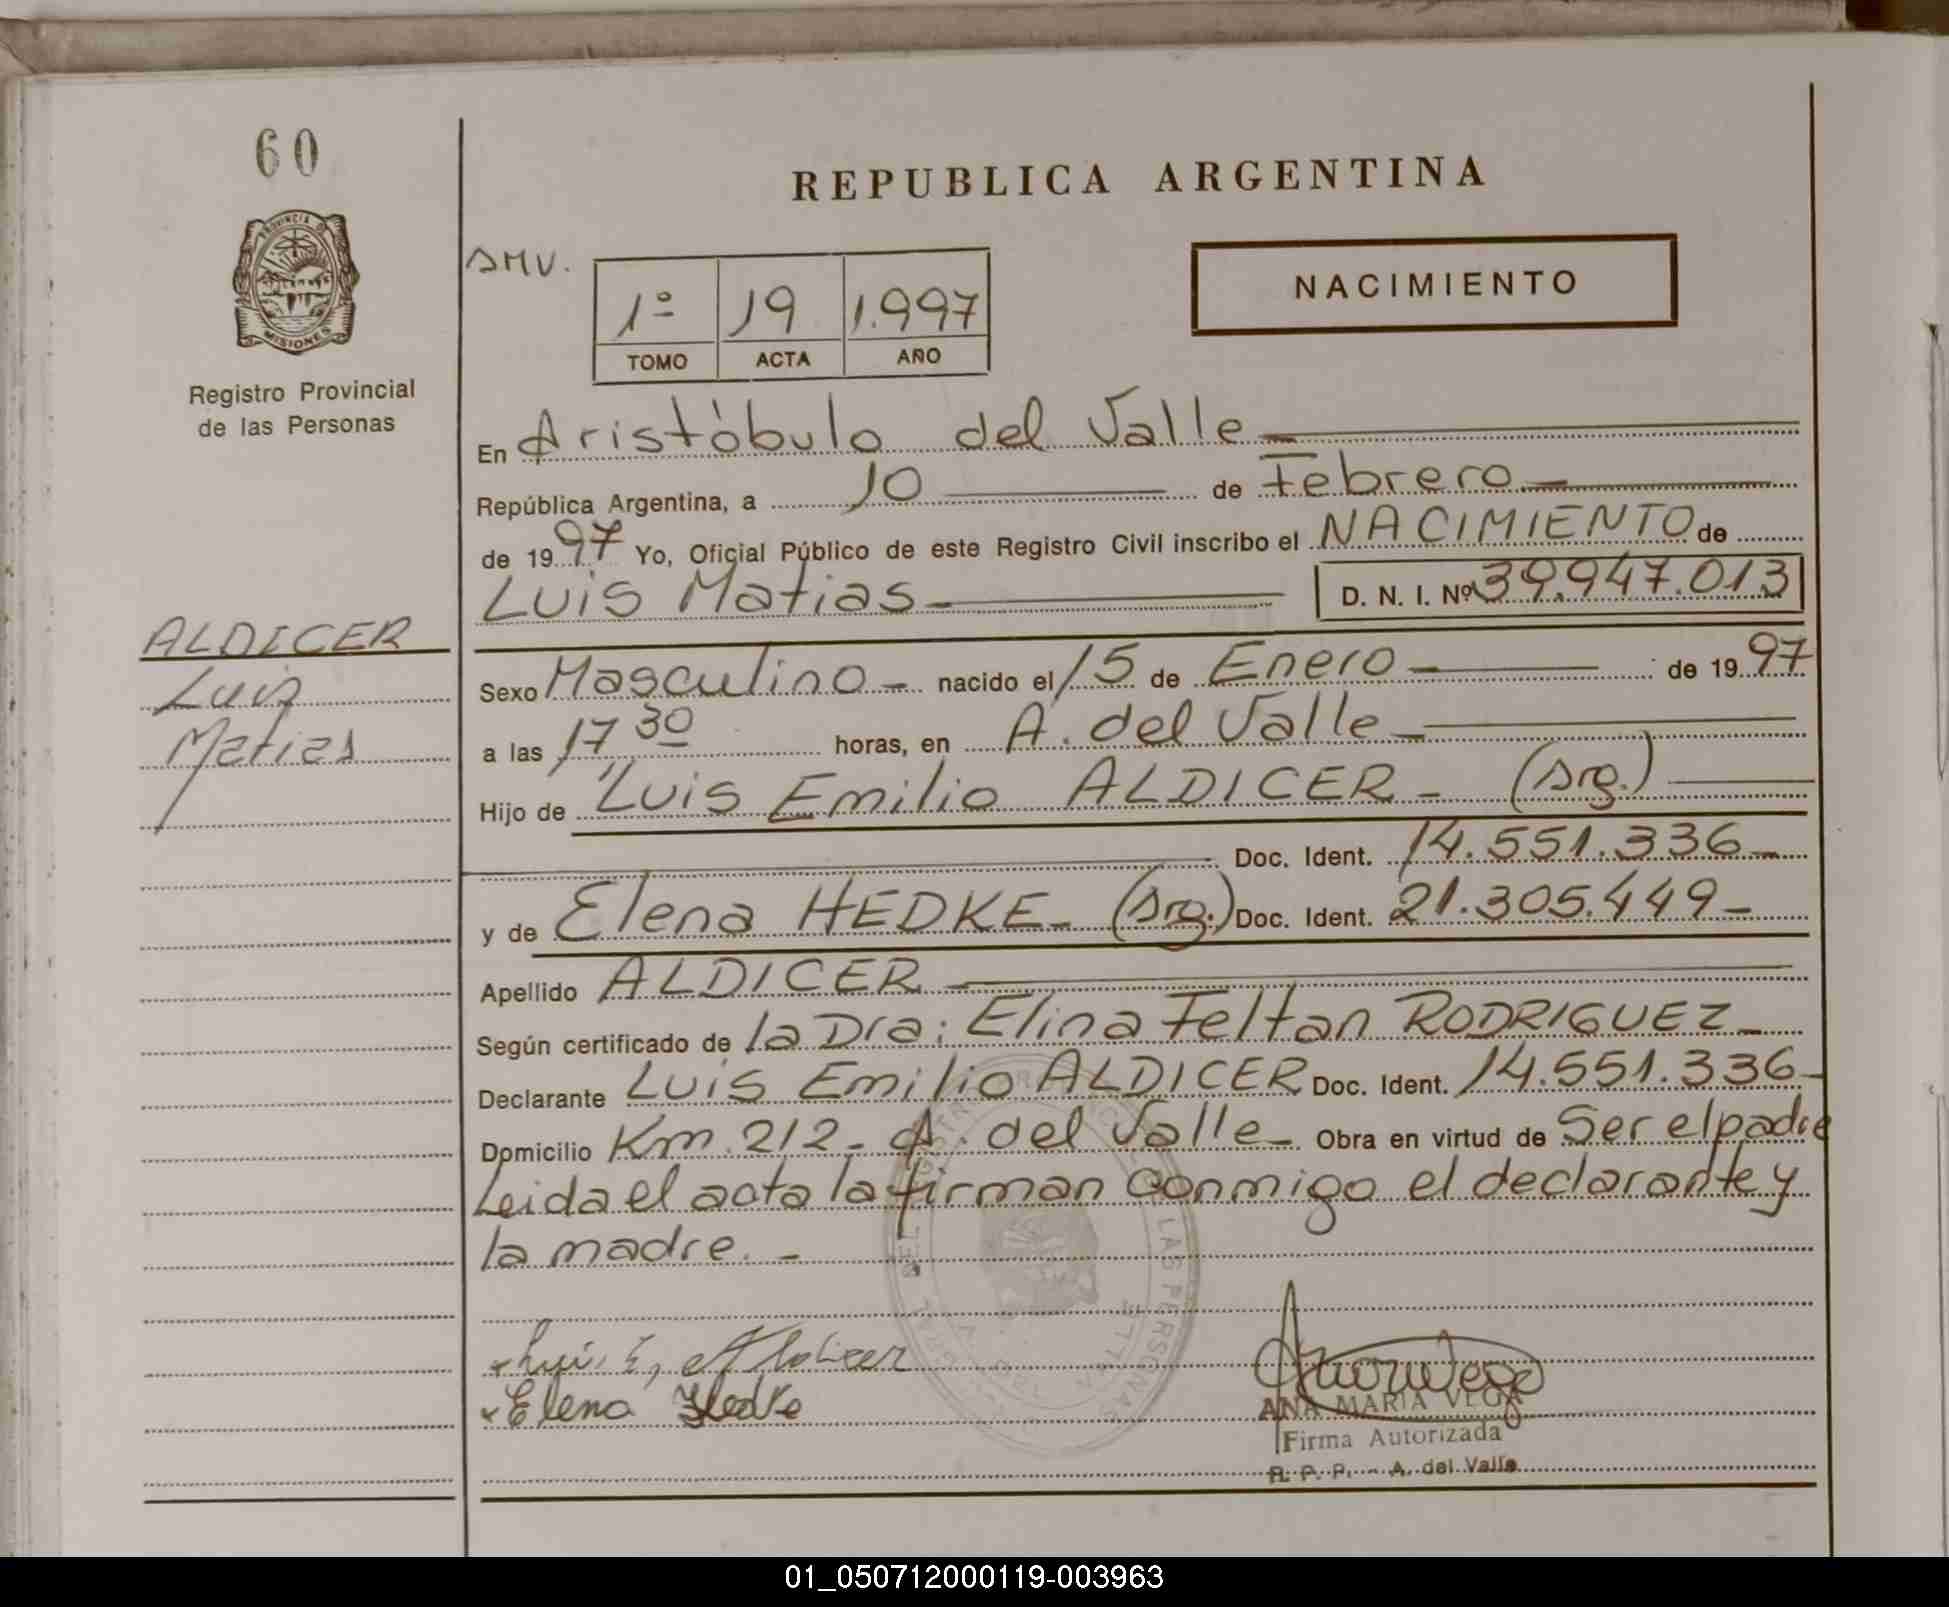 60
PROVINCIA DE
MISIONES
Registro Provincial
de las Personas
REPUBLICA ARGENTINA
SMV.
1º 19 1.997
TOMO ACTA AÑO
NACIMIENTO
En Aristóbulo del Valle
República Argentina, a 10 de Febrero
de 1997 Yo, Oficial Público de este Registro Civil inscribo el NACIMIENTO de
Luis Matias D. N. I. Nº 39.947.013
ALDICER
Luis
Matias
Sexo Masculino nacido el 15 de Enero de 1997
a las 17 30 horas, en A. del Valle
Hijo de Luis Emilio ALDICER - (Arg.)
Doc. Ident. 14.551.336
y de Elena HEDKE - (Arg.) Doc. Ident. 21.305.449
Apellido ALDICER
Según certificado de la Dra: Elina Feltan RODRIGUEZ
Declarante Luis Emilio ALDICER Doc. Ident. 14.551.336
Domicilio Km 212 - A. del Valle Obra en virtud de Ser el padre
Leida el acta la firman conmigo el declarante y
la madre. -
Luis E. Aldicer
Elena Hedke
ANA MARIA VEGA
Firma Autorizada
R. P. P. - A. del Valle
01_050712000119-003963